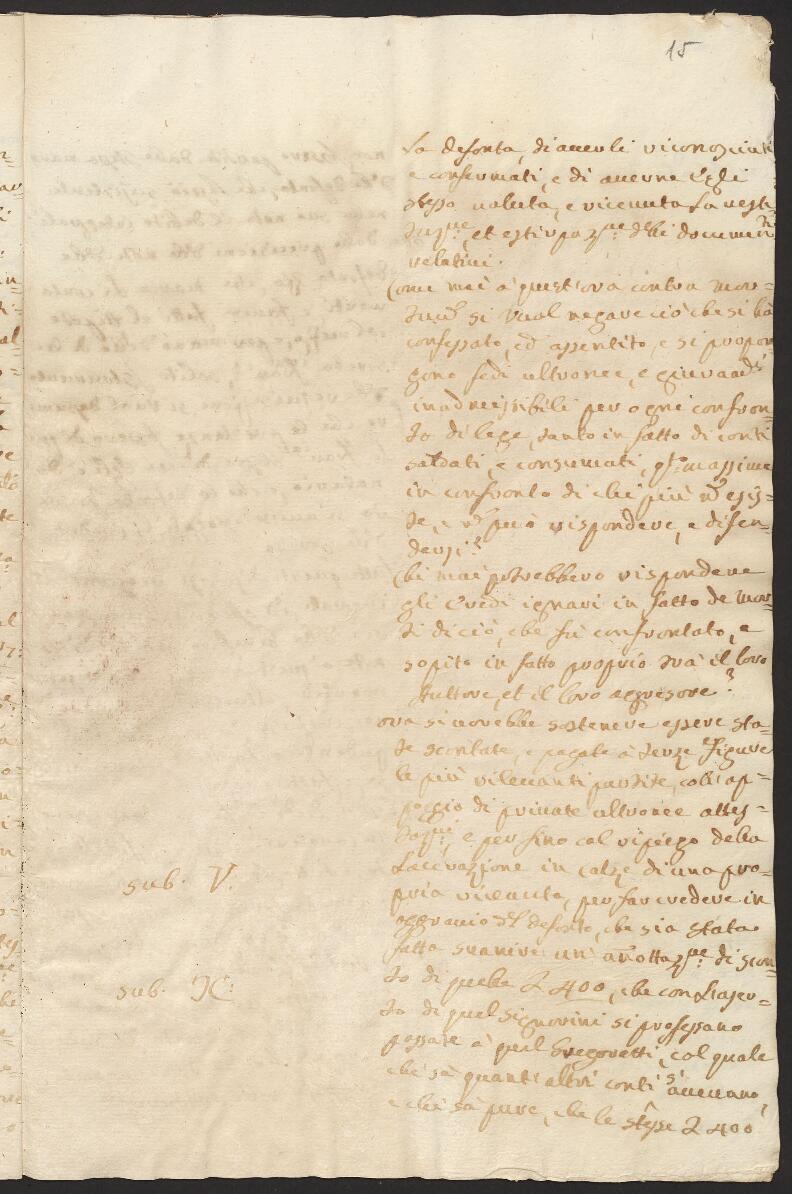 15
La defonta, di averli riconosciuti
e confermati, e di averne Egli
stesso valuta, e ricevuta la resti=
tuz.ne, et estirpaz.ne delli documenti
relativi.
Come mai à quest'ora contra mor=
tuũ si vuol negare ciò che si hà
confessato, ed assentito, e si propon=
gono fedi ultronee, e
inadmissibili per ogni confron=
to di lege, tanto in fatto di conti
saldati, e consumati, massime
in confronto di chi più nõ esis=
te, e nõ può rispondere, e difen=
dersi?
Chi mai potrebbero rispondere
gli Eredi ignari in fatto de mor=
ti di ciò, che fù confrontato, e
sopito in fatto proprio trà il loro
Auttore, et il loro agresore?
ora si vorebbe sostenere essere sta=
te scontate, e pagate à terze figure
le più rilevanti partite, coll' ap=
poggio di private ultronee attes=
taz.ni, e per fino col ripiego della
Lacerazione in calze di una pro=
pria ricevuta, per far credere in
aggravio del defonto, che sia stata
fatta svanire un' annottaz.ne di scon=
to di quelle L 400, che con
to di quel Signorini si professano
passate à quel Gregoretti, col quale
chi sà quanti altri conti si avevano,
e chi sà pure, che le stesse L 400
sub. V.
sub. X: